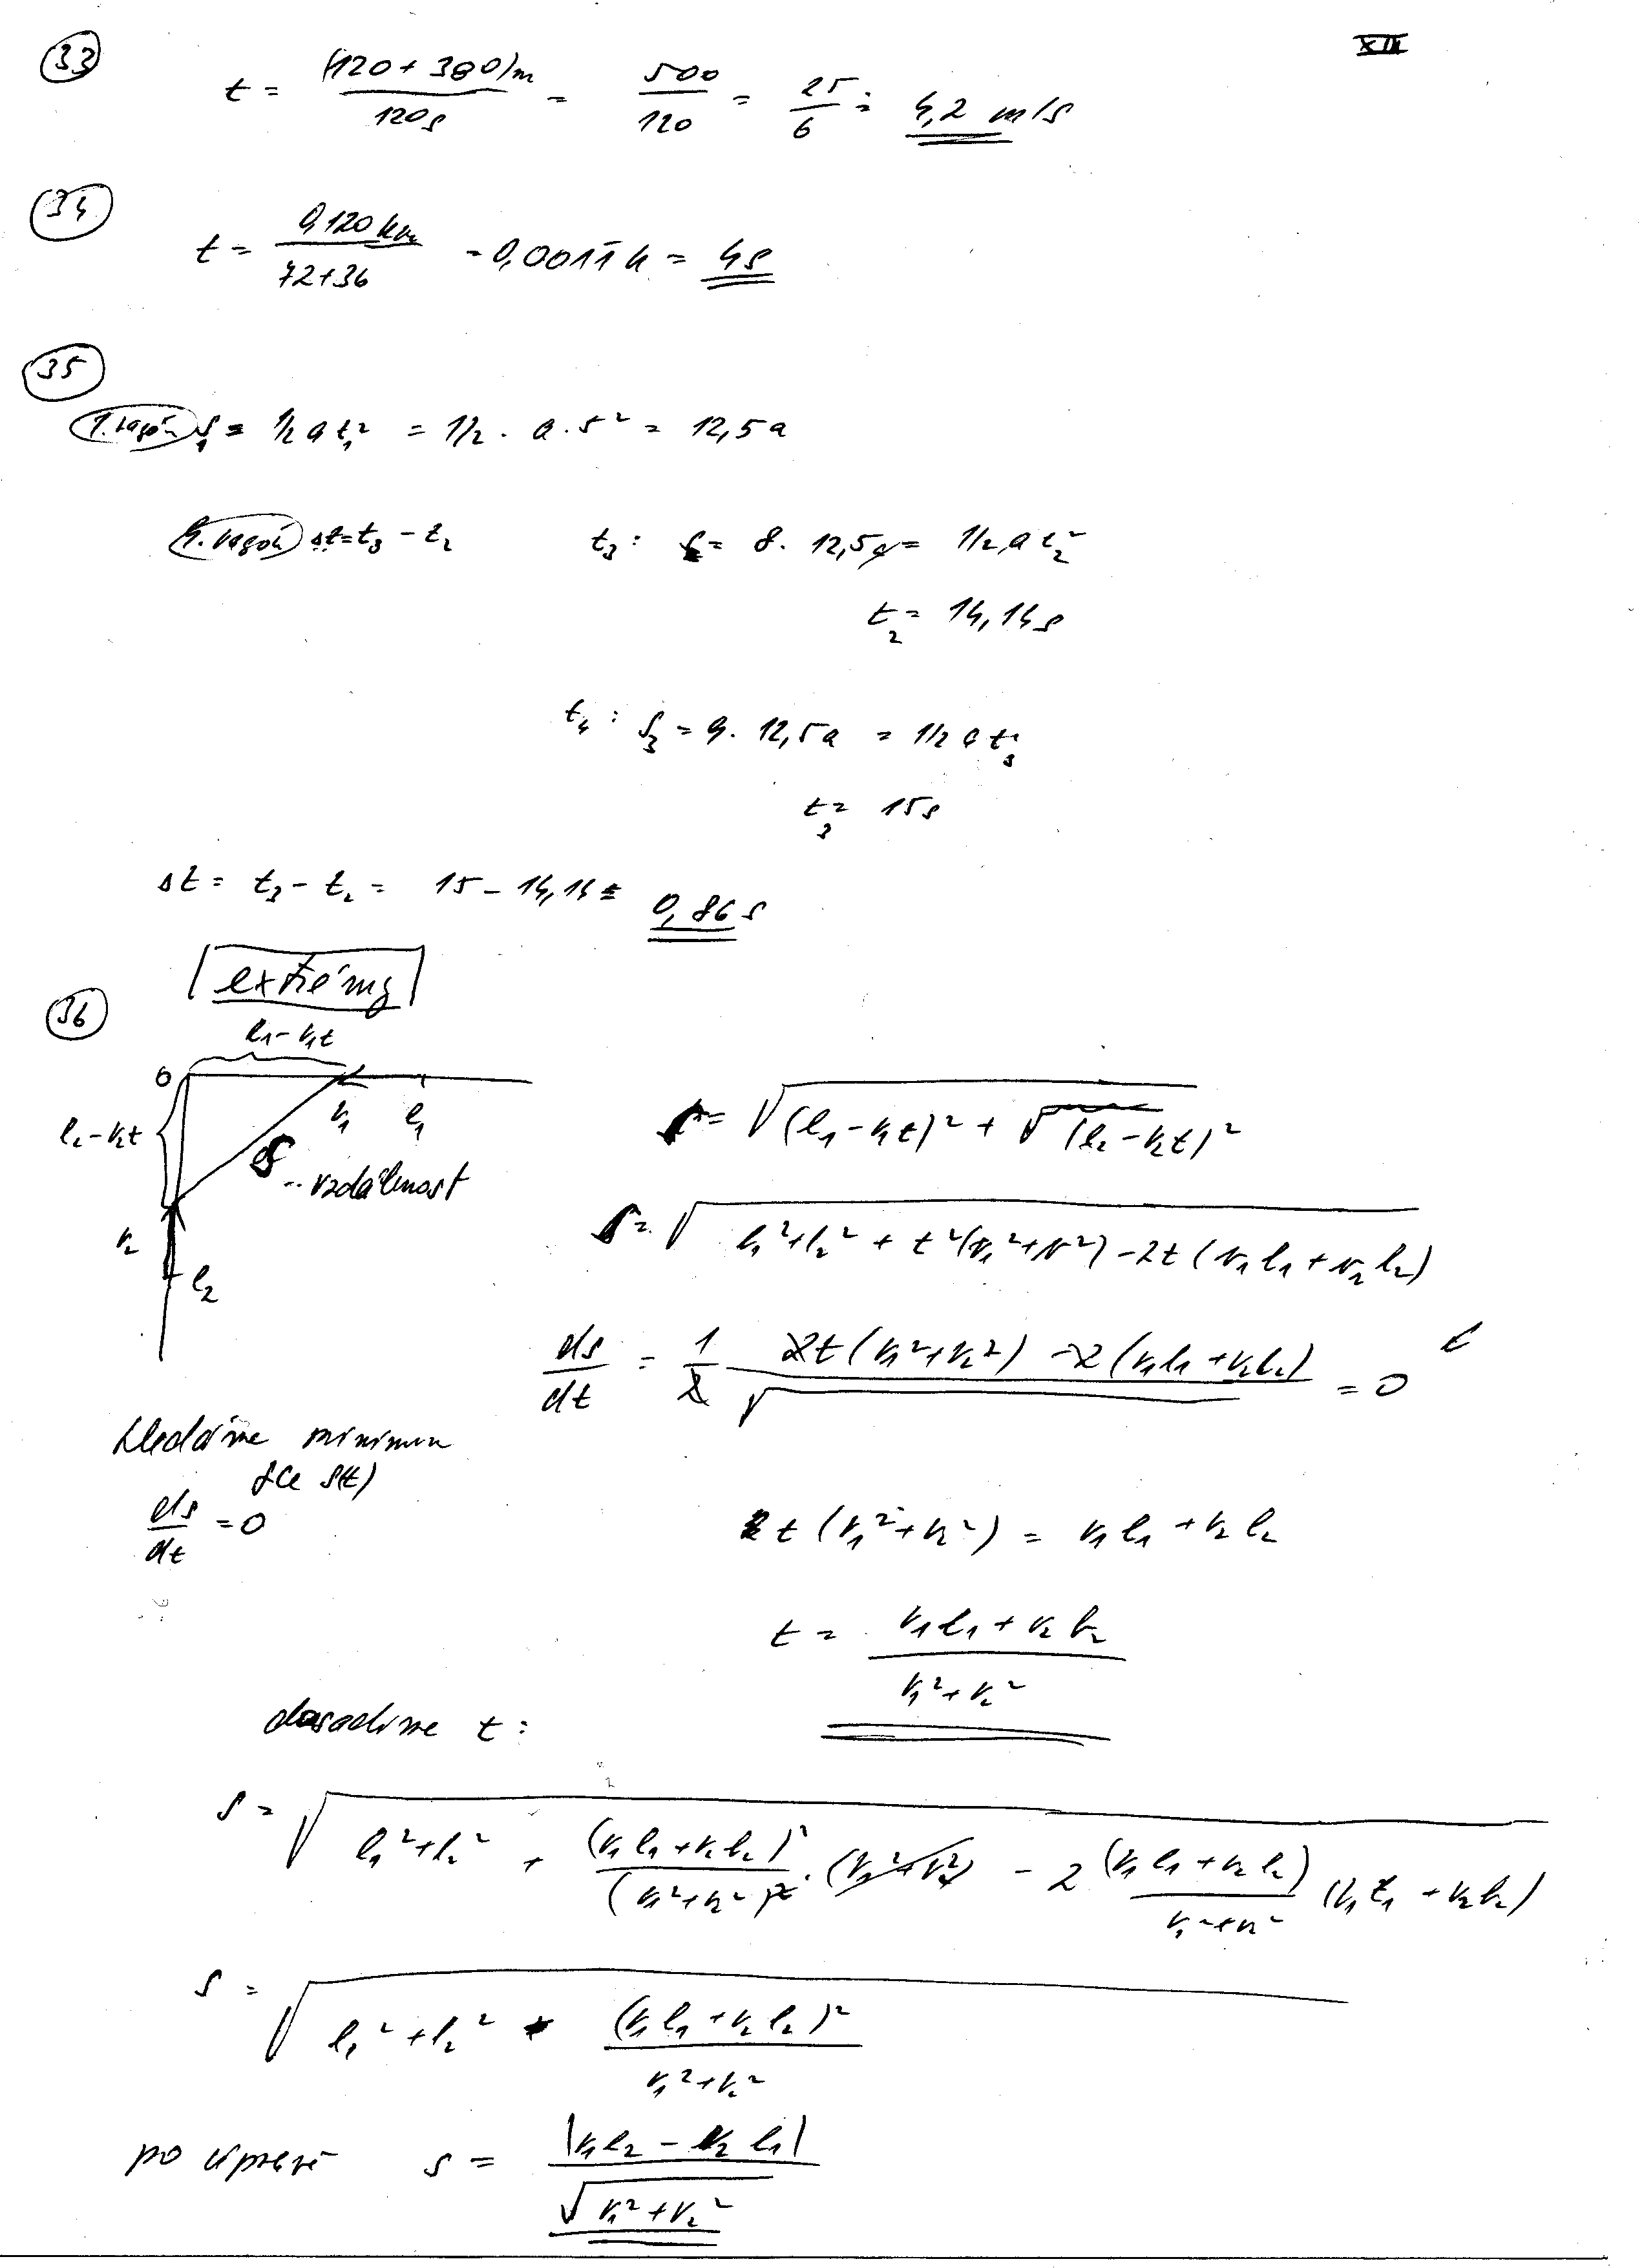 XIII
33
t = (120 + 380)m / 120s = 500 / 120 = 25 / 6 ≐ 4,2 m/s
34
t = 0,120 km / 72+36 = 0,0011 h = 4s
35
1. vagón s₁ = 1/2 a t₁² = 1/2 · a · 5² = 12,5 a
9. vagón Δt = t₃ - t₂ t₃: s = 8 · 12,5a = 1/2 a t₂²
t₂ = 14,14s
t₄: s₃ = 9 · 12,5a = 1/2 a t₃²
t₃ = 15s
Δt = t₃ - t₂ = 15 - 14,14 = 0,86 s
36 extrémy
l₁ - v₁t
0
l₂ - v₂t v₁ l₁
s .. vzdálenost
v₂
l₂
s = √((l₁ - v₁t)² + (l₂ - v₂t)²)
s = √(l₁² + l₂² + t²(v₁² + v²) - 2t(v₁l₁ + v₂l₂))
ds/dt = 1/2 · (2t(v₁² + v₂²) - 2(v₁l₁ + v₂l₂)) / √ = 0
hledáme minimum
fce s(t)
ds/dt = 0
t(v₁² + v₂²) = v₁l₁ + v₂l₂
t = (v₁l₁ + v₂l₂) / (v₁² + v₂²)
dosadíme t:
s = √(l₁² + l₂² + (v₁l₁ + v₂l₂)² / (v₁² + v₂²)² · (v₁² + v₂²) - 2 (v₁l₁ + v₂l₂) / (v₁² + v₂²) (v₁l₁ + v₂l₂))
s = √(l₁² + l₂² - (v₁l₁ + v₂l₂)² / (v₁² + v₂²))
po úpravě s = |v₁l₂ - v₂l₁| / √(v₁² + v₂²)